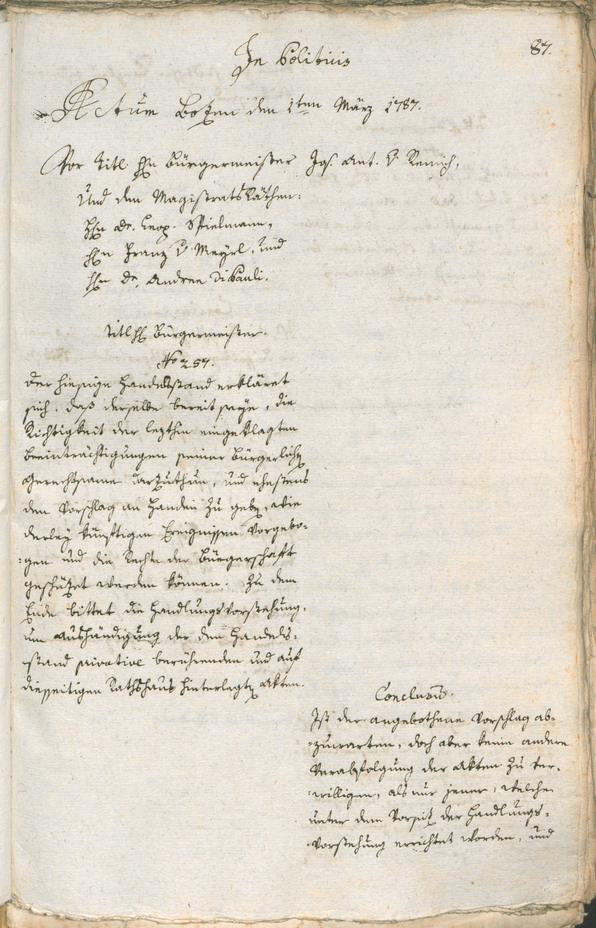 87.
In Politicis
Actum Botzen den 1ten März 1787.
Vor Titl Hn Bürgermeister Jos. Ant. v
Und den Magistrats Räthen:
Hn Dr. Leop. Spielmann,
Hn Franz v Mayrl, und
Hn Dr. Andree Dipauli.
Titl H Bürgermeister.
No 257.
Der hiesige Handelsstand erkläret
sich, daß derselbe bereit seye, die
Richtigkeit der letzthin eingeklagten
Beeinträchtigungen seiner Bürgerlichen
Gerechtsame darzuthun, und ehestens
den Vorschlag an Handen zu geben, wie
derley künftigen Ereignissen vorgebo-
gen und die Rechte der Bürgerschafft
geschützet werden können. Zu dem
Ende bittet die Handlungsvorstehung,
um Aushändigung der den Handels-
stand privative berührenden und auf
diesseitigen Rathshaus hinterlegten Akten.
Conclusum.
Ist der angebothene Vorschlag ab-
zuwarten, doch aber keine andere
Verabfolgung der Akten zu ver-
willigen, als nur jener, welche
unter dem Vorsitz der Handlungs-
Vorstehung errichtet worden, und